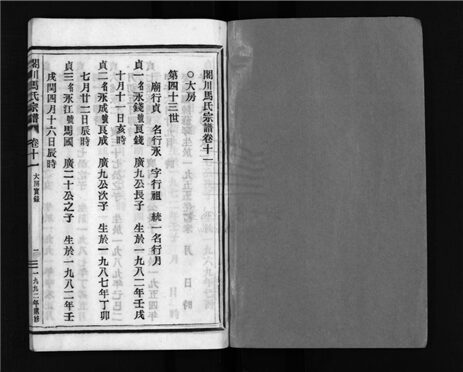 閣川馬氏宗譜卷十一
○大房
第四十三世
廟行貞 名行永 字行祖 統一名行月
貞一名永錢號良錢 廣九公長子 生於一九八二年壬戌
十月十一日亥時
貞二名永成號良成 廣九公次子 生於一九八七年丁卯
七月廿二日辰時
貞三名永江號馬國 廣二十公之子 生於一九八二年壬
戌閏四月十六日辰時
閣川馬氏宗譜 卷十一 大房實錄 二 一九九二年重修